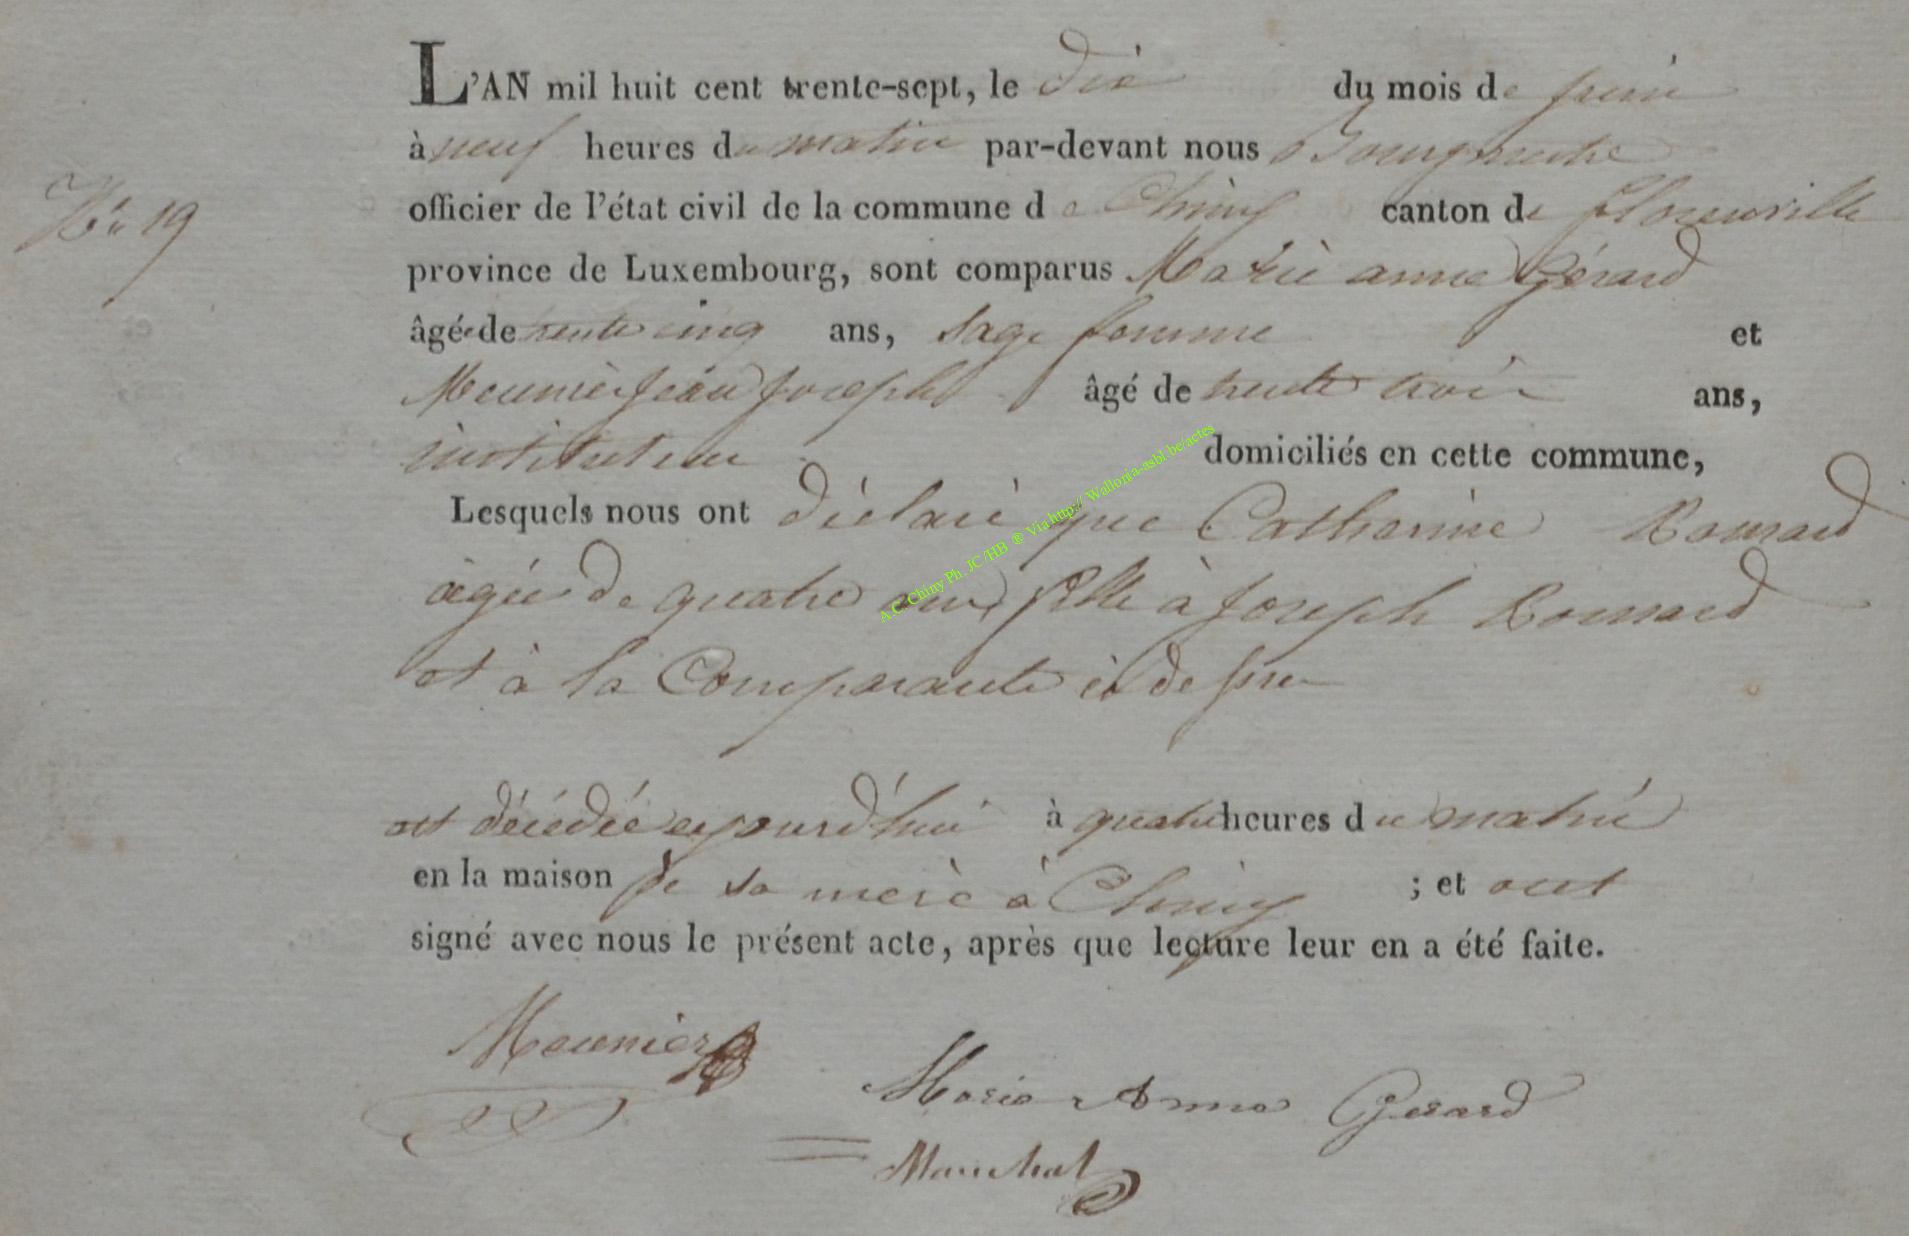 L'AN mil huit cent trente-sept, le dix du mois de juin
à neuf heures du matin par-devant nous Bourgmestre
N° 19
officier de l'état civil de la commune de Chiny canton de florenville
province de Luxembourg, sont comparus Marie anne Gérard
âgée de trente cinq ans, sage femme et
Meunier Jean Joseph âgé de trente trois ans,
instituteur domiciliés en cette commune,
Lesquels nous ont déclaré que Catherine Roussard
agée de quatre ans, fille à Joseph Roussard
et à la Comparante
est décédée aujourd'hui à quatre heures du matin
en la maison de sa mère à Chiny ; et ont
signé avec nous le présent acte, après que lecture leur en a été faite.
Meunier
Marie Anne Gerard
Marechal
A.C. Chiny Ph. JC /HB ® Via http:// Wallonia-asbl.be/actes